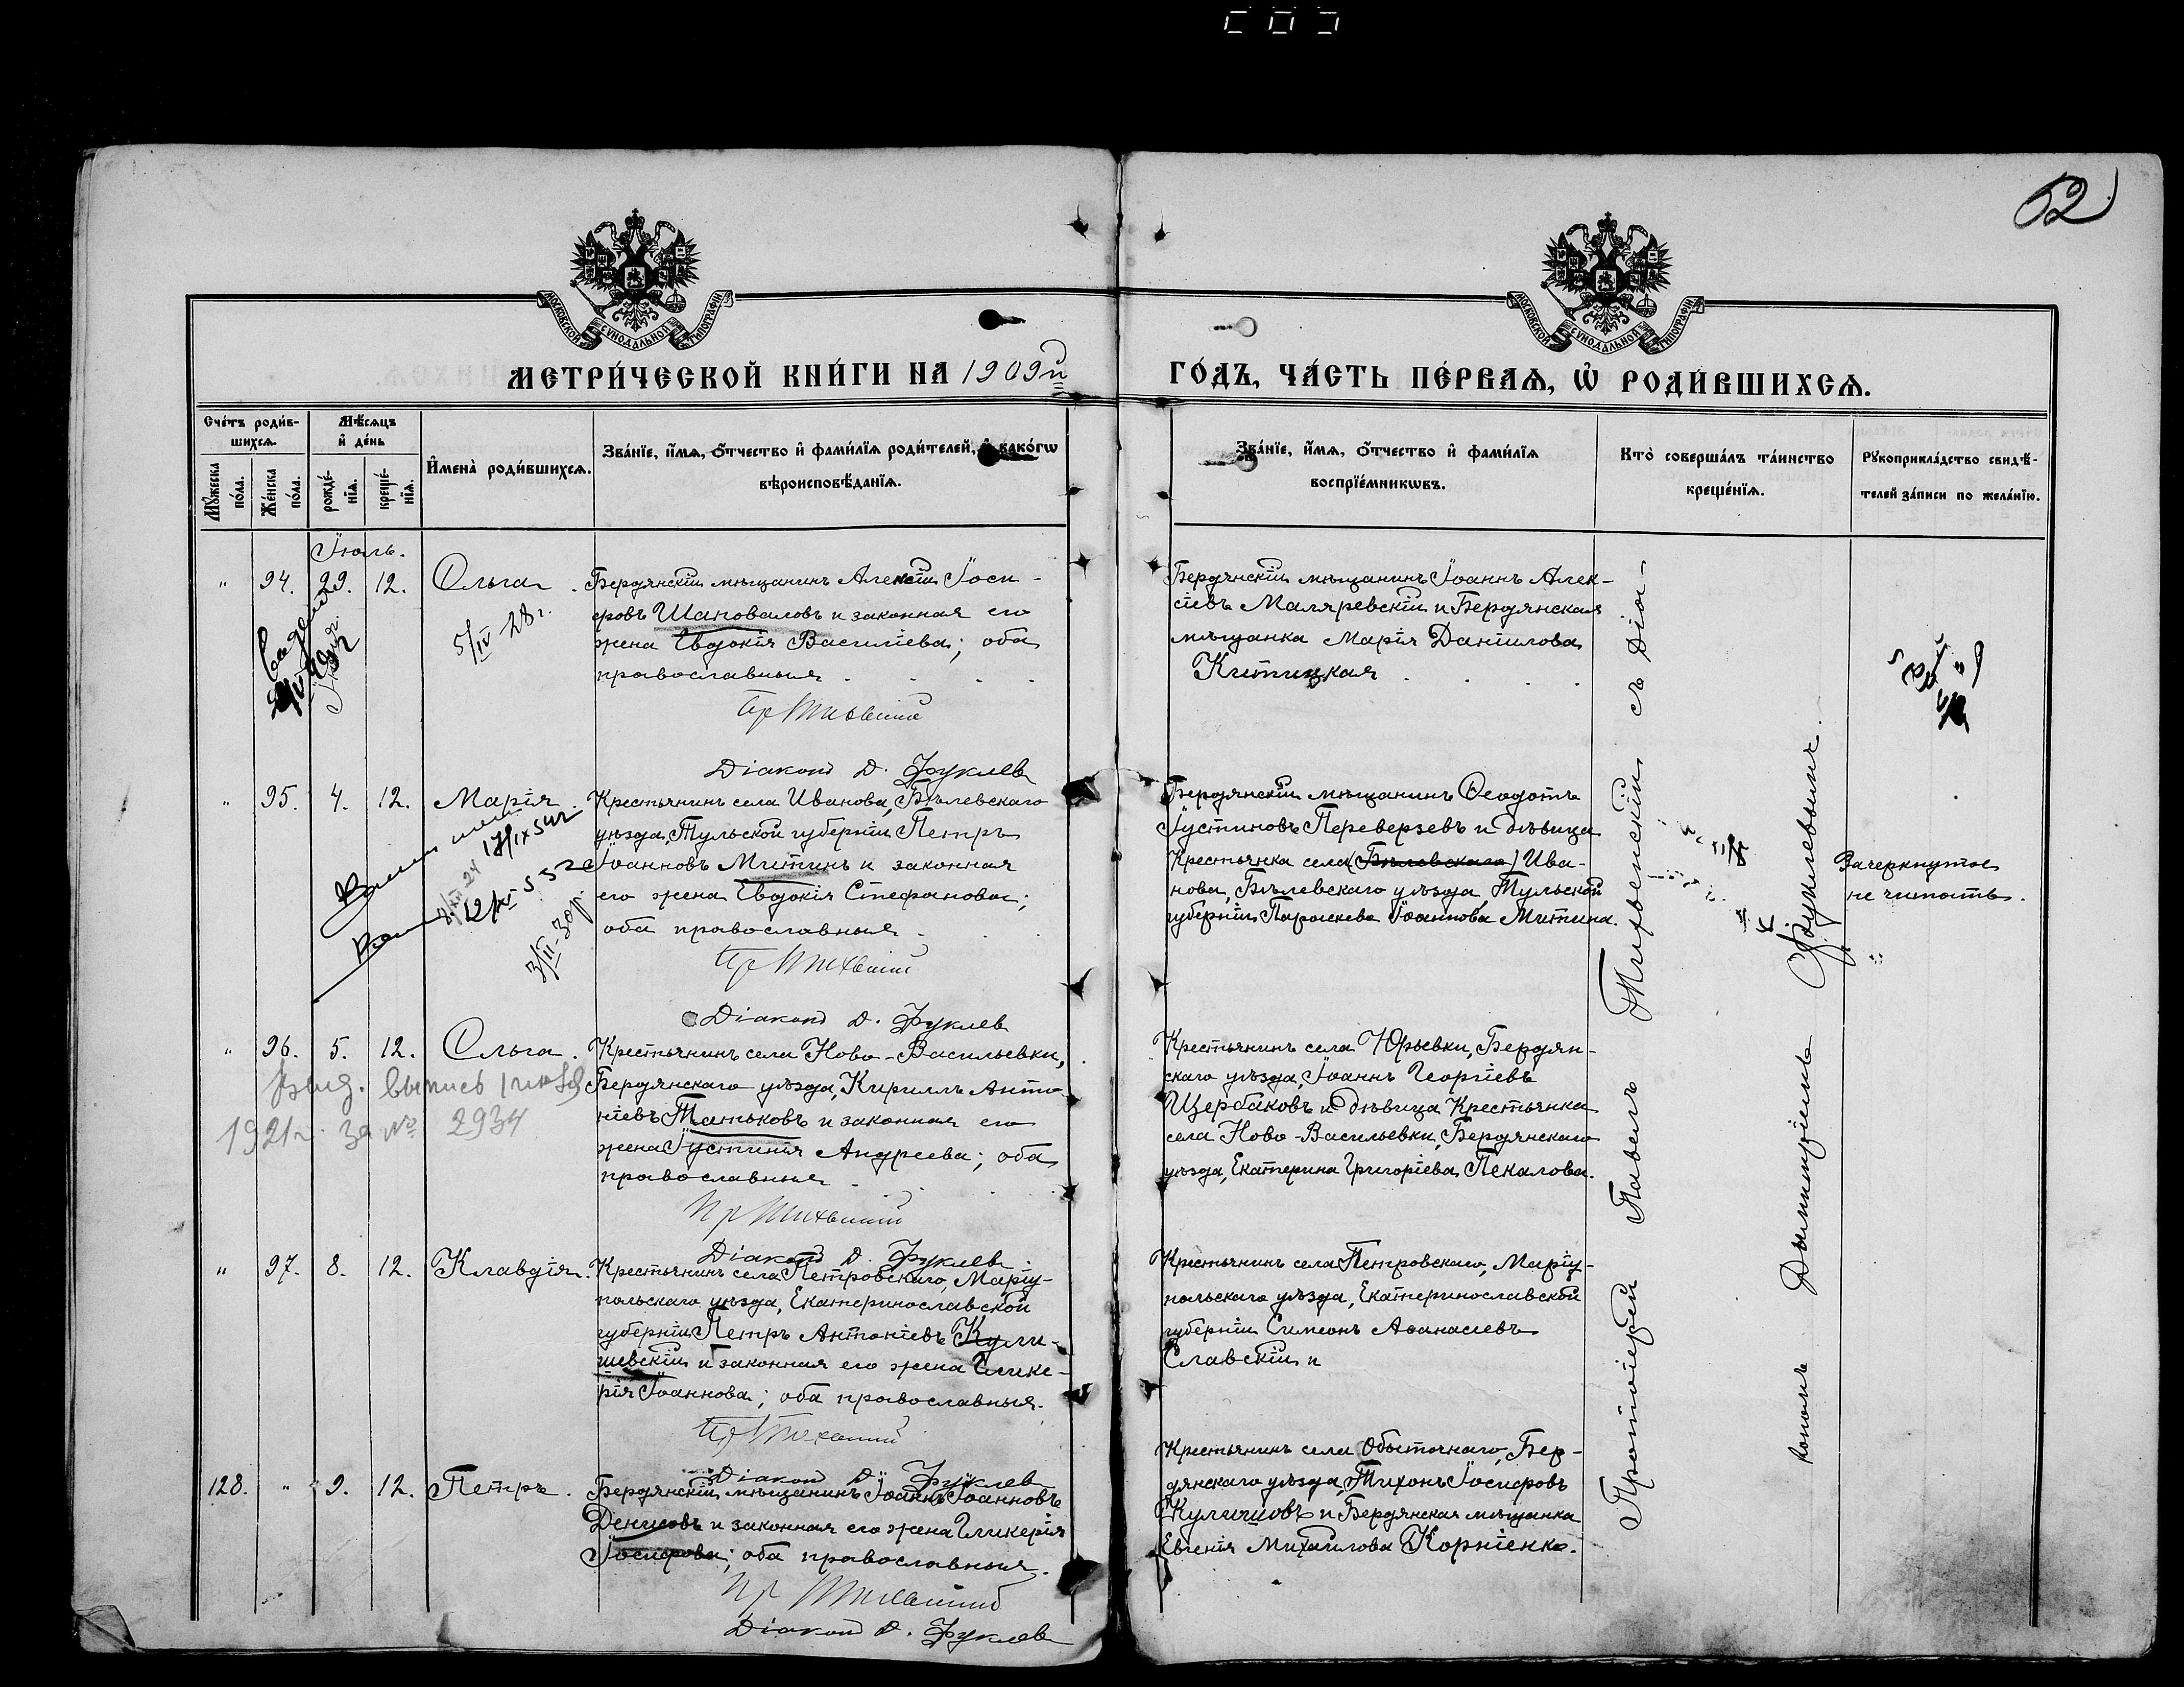 62
МОСКОВСКОЙ СѴНОДАЛЬНОЙ ТИПОГРАФІИ
МОСКОВСКОЙ СѴНОДАЛЬНОЙ ТИПОГРАФІИ
МЕТРИ́ЧЕСКОЙ КНИ́ГИ НА 1909й
ГО́ДЪ, ЧА́СТЬ ПЕ́РВАѦ, Ѡ҆ РОДИ́ВШИХСѦ.
Сче́тъ роди́в-
шихсѧ.
Мѣ́сѧцъ
и҆ де́нь
Мꙋ́жеска по́ла.
Же́нска по́ла.
рожде́-
нїѧ.
креще́-
нїѧ.
И҆мена̀ роди́вшихсѧ.
Зва́нїе, и҆́мѧ, ѻ҆́тчество и҆ фами́лїѧ роди́телей, и҆ како́гѡ
вѣроисповѣ́данїѧ.
Зва́нїе, и҆́мѧ, ѻ҆́тчество и҆ фами́лїѧ
воспрїе́мникѡвъ.
Кто̀ соверша́лъ та́инство
креще́нїѧ.
Рꙋкоприкла́дство свидѣ́-
телей за́писи по жела́нїю.
Іюль.
" 94. 29. 12. Ольга.
5/IV-28 г.
Бердянскій мѣщанинъ Алексій Іоси-
фовъ Шаповаловъ и законная его
жена Евдокія Василіева; оба
православныя.
Діаконъ Д. Фуклев
Бердянскій мѣщанинъ Іоаннъ Алек-
сіевъ Маляревскій и Бердянская
мѣщанка Марія Даніилова
Китицкая
" 95. 4. 12. Марія.
17/IX 54г
12/XI-53г
3/II-30г.
Крестьянинъ села Иванова, Бѣлевскаго
уѣзда, Тульской губерніи Петръ
Іоанновъ Митинъ и законная
его жена Евдокія Стефанова;
оба православныя.
Діаконъ Д. Фуклев
Бердянскій мѣщанинъ Ѳеодотъ
Іустиновъ Переверзевъ и дѣвица
Крестьянка села (Бѣлевскаго) Ива-
нова, Бѣлевскаго уѣзда, Тульской
губерніи Параскева Іоаннова Митина.
Зачеркнутое
не читать.
" 96. 5. 12. Ольга.
Выд. выпись
1921 г. за № 2934
Крестьянинъ села Ново-Васильевки,
Бердянскаго уѣзда, Кириллъ Анто-
ніевъ Таньковъ и законная его
жена Іустинія Андреева; оба
православныя.
Діаконъ Д. Фуклев
Крестьянинъ села Юрьевки, Бердян-
скаго уѣзда, Іоаннъ Георгіевъ
Щербаковъ и дѣвица Крестьянка
села Ново-Васильевки, Бердянскаго
уѣзда, Екатерина Григоріева Пекалова.
" 97. 8. 12. Клавдія.
Крестьянинъ села Петровскаго, Маріу-
польскаго уѣзда, Екатеринославской
губерніи Петръ Антоніевъ Кули-
шевскій и законная его жена Глике-
рія Іоаннова; оба православныя.
Діаконъ Д. Фуклев
Крестьянинъ села Петровскаго, Маріу-
польскаго уѣзда, Екатеринославской
губерніи Симеонъ Аѳанасіевъ
Славскій и
128. " 9. 12. Петръ.
Бердянскій мѣщанинъ Іоаннъ Іоанновъ
Денисовъ и законная его жена Гликерія
Іосифова; оба православныя.
Діаконъ Д. Фуклев
Крестьянинъ села Обыточнаго, Бер-
дянскаго уѣзда, Тихонъ Іосифовъ
Куличовъ и Бердянская мѣщанка
Евгенія Михаилова Корніенко.
Протоіерей Павелъ Тихвенскій съ Діа-
кономъ Димитріемъ Фуклевымъ.